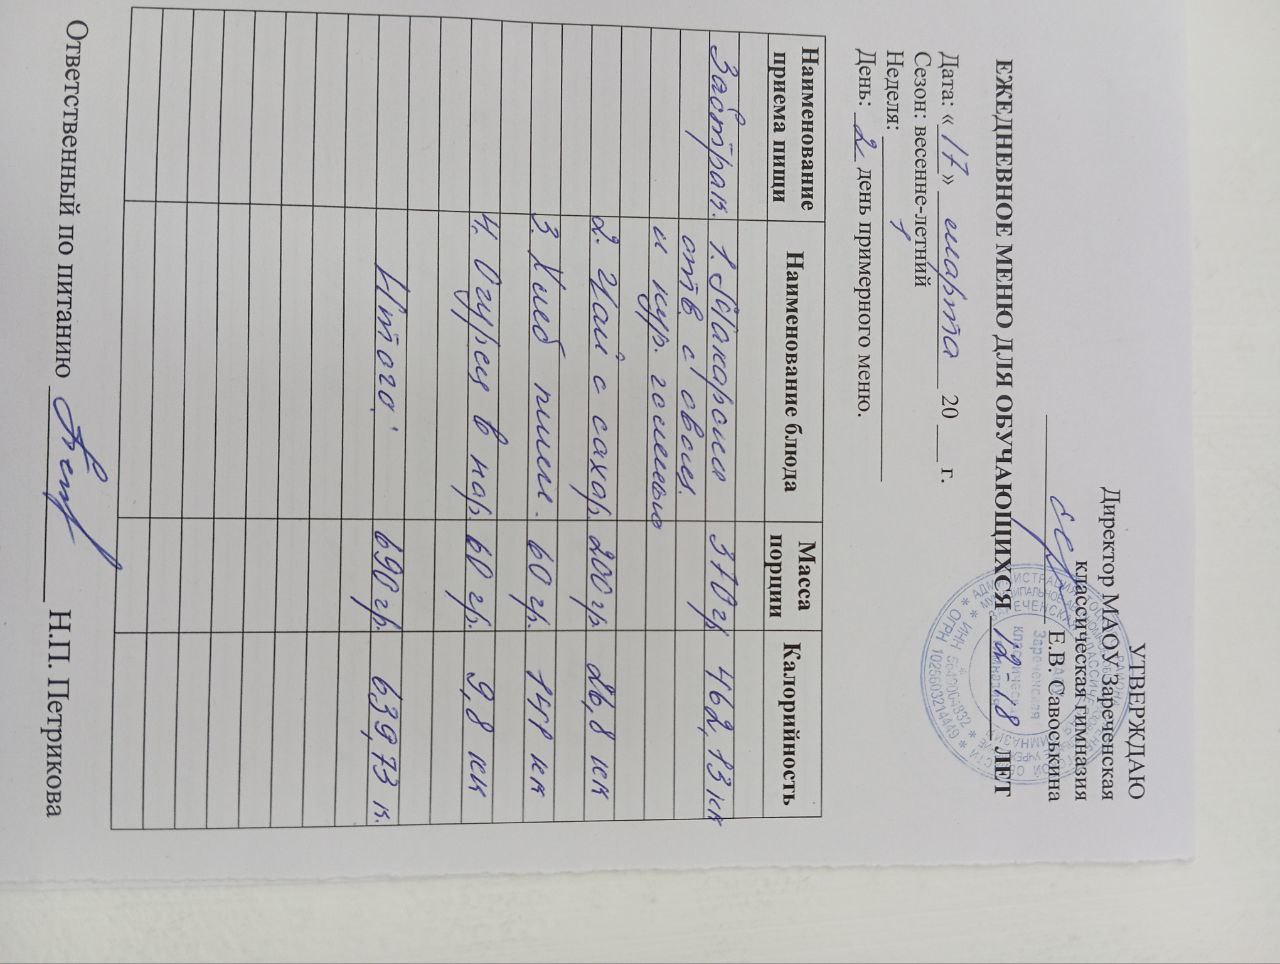 УТВЕРЖДАЮ
Директор МАОУ Зареченская
классическая гимназия
Е.В. Савоськина
ЕЖЕДНЕВНОЕ МЕНЮ ДЛЯ ОБУЧАЮЩИХСЯ 12-18 ЛЕТ
Дата: « 17 » марта 20 г.
Сезон: весенне-летний
Неделя: 1
День: 2 день примерного меню.
Наименование приема пищи Наименование блюда Масса порции Калорийность
Завтрак. 1. Макароны 370 гр 462,13 кк
отв. с овощ.
и кур. голенью
2. Чай с сахар. 200 гр. 26,8 кк
3. Хлеб пшен. 60 гр. 141 кк
4. Огурец в нар. 60 гр. 9,8 кк
Итого: 690 гр. 639,73 к.
Ответственный по питанию Н.П. Петрикова